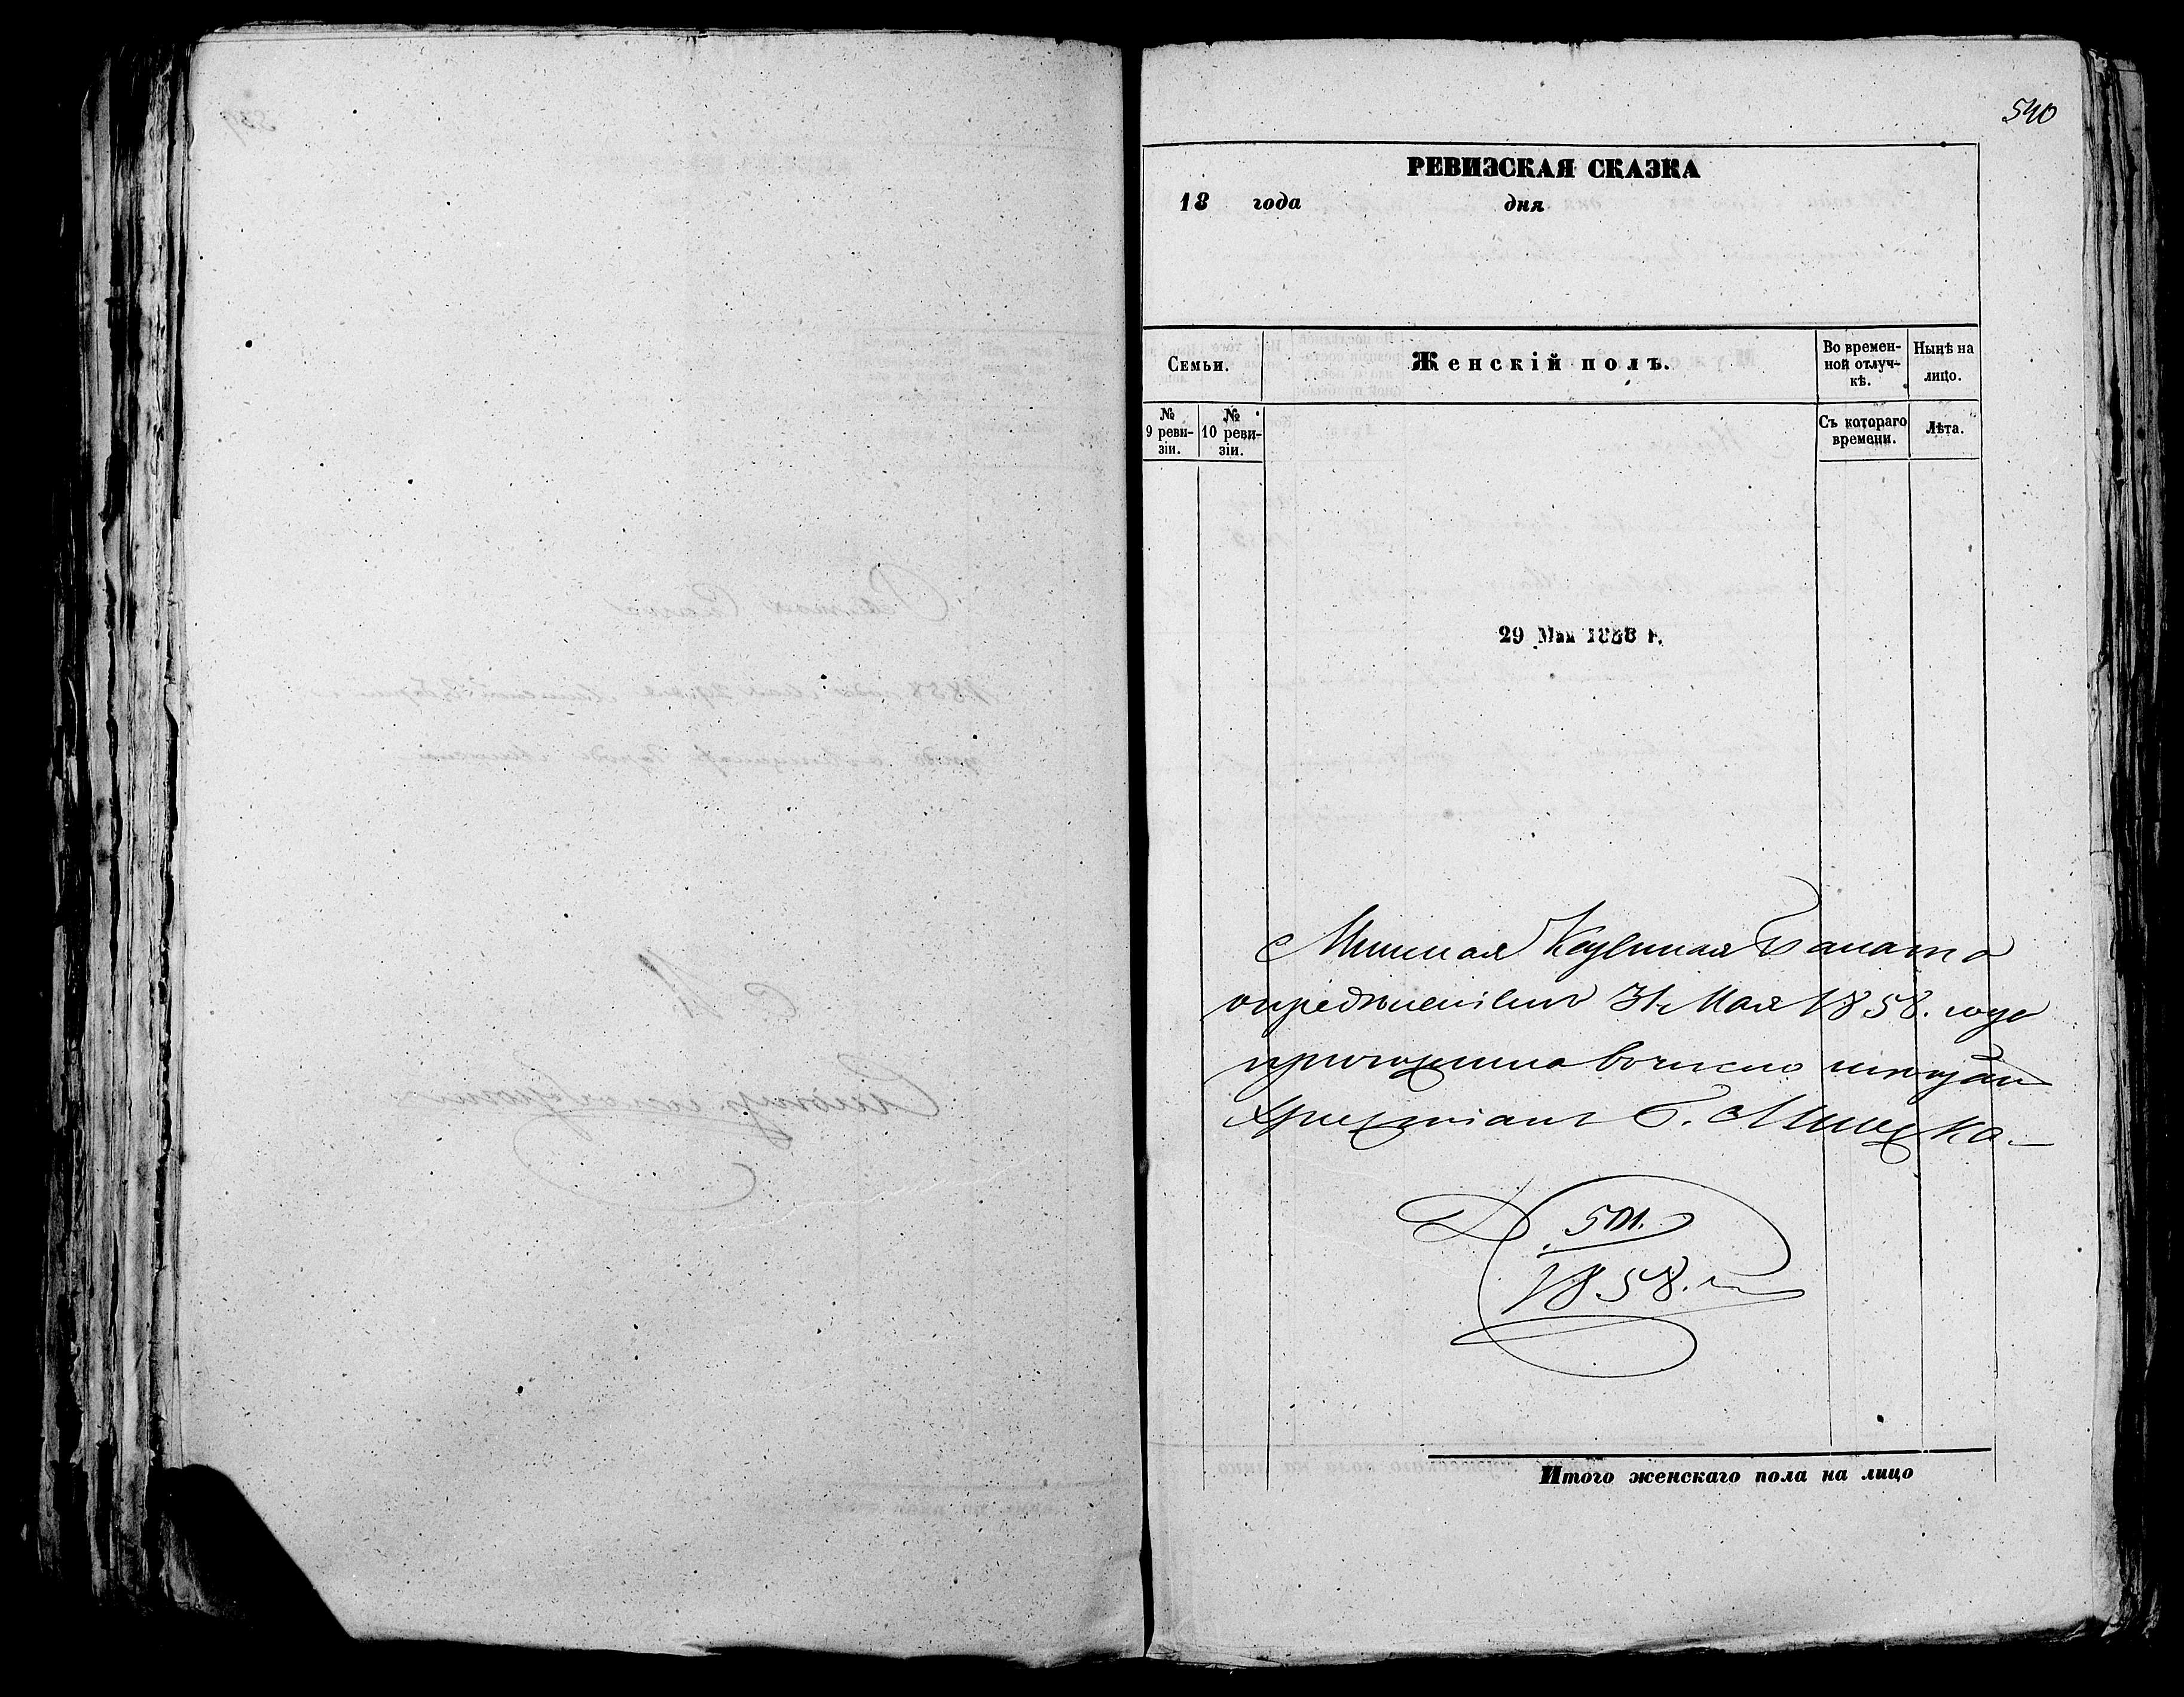 540
РЕВИЗСКАЯ СКАЗКА
18 года дня
Семьи.
Женскій полъ.
Во времен-
ной отлуч-
кѣ.
Нынѣ на
лицо.
№
9 реви-
зіи.
№
10 реви-
зіи.
Съ котораго
времени.
Лѣта.
29 Мая 1858 г.
Минская Казенная Палата
опредѣленіемъ 31 Мая 1858. года
причислила въ число мѣщан
Христіанъ Г. Минска.
1858. г.
Итого женскаго пола на лицо